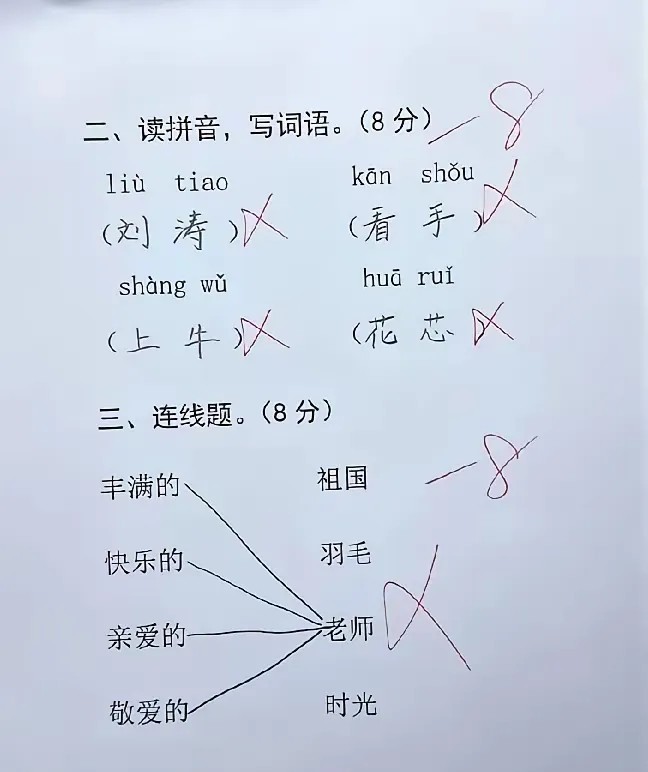 二、读拼音，写词语。（8分） －8
liù tiao kān shǒu
（刘 涛） （看 手）
shàng wǔ huā ruǐ
（上 牛） （花 芯）
三、连线题。（8分）
丰满的 祖国 －8
快乐的 羽毛
亲爱的 老师
敬爱的 时光